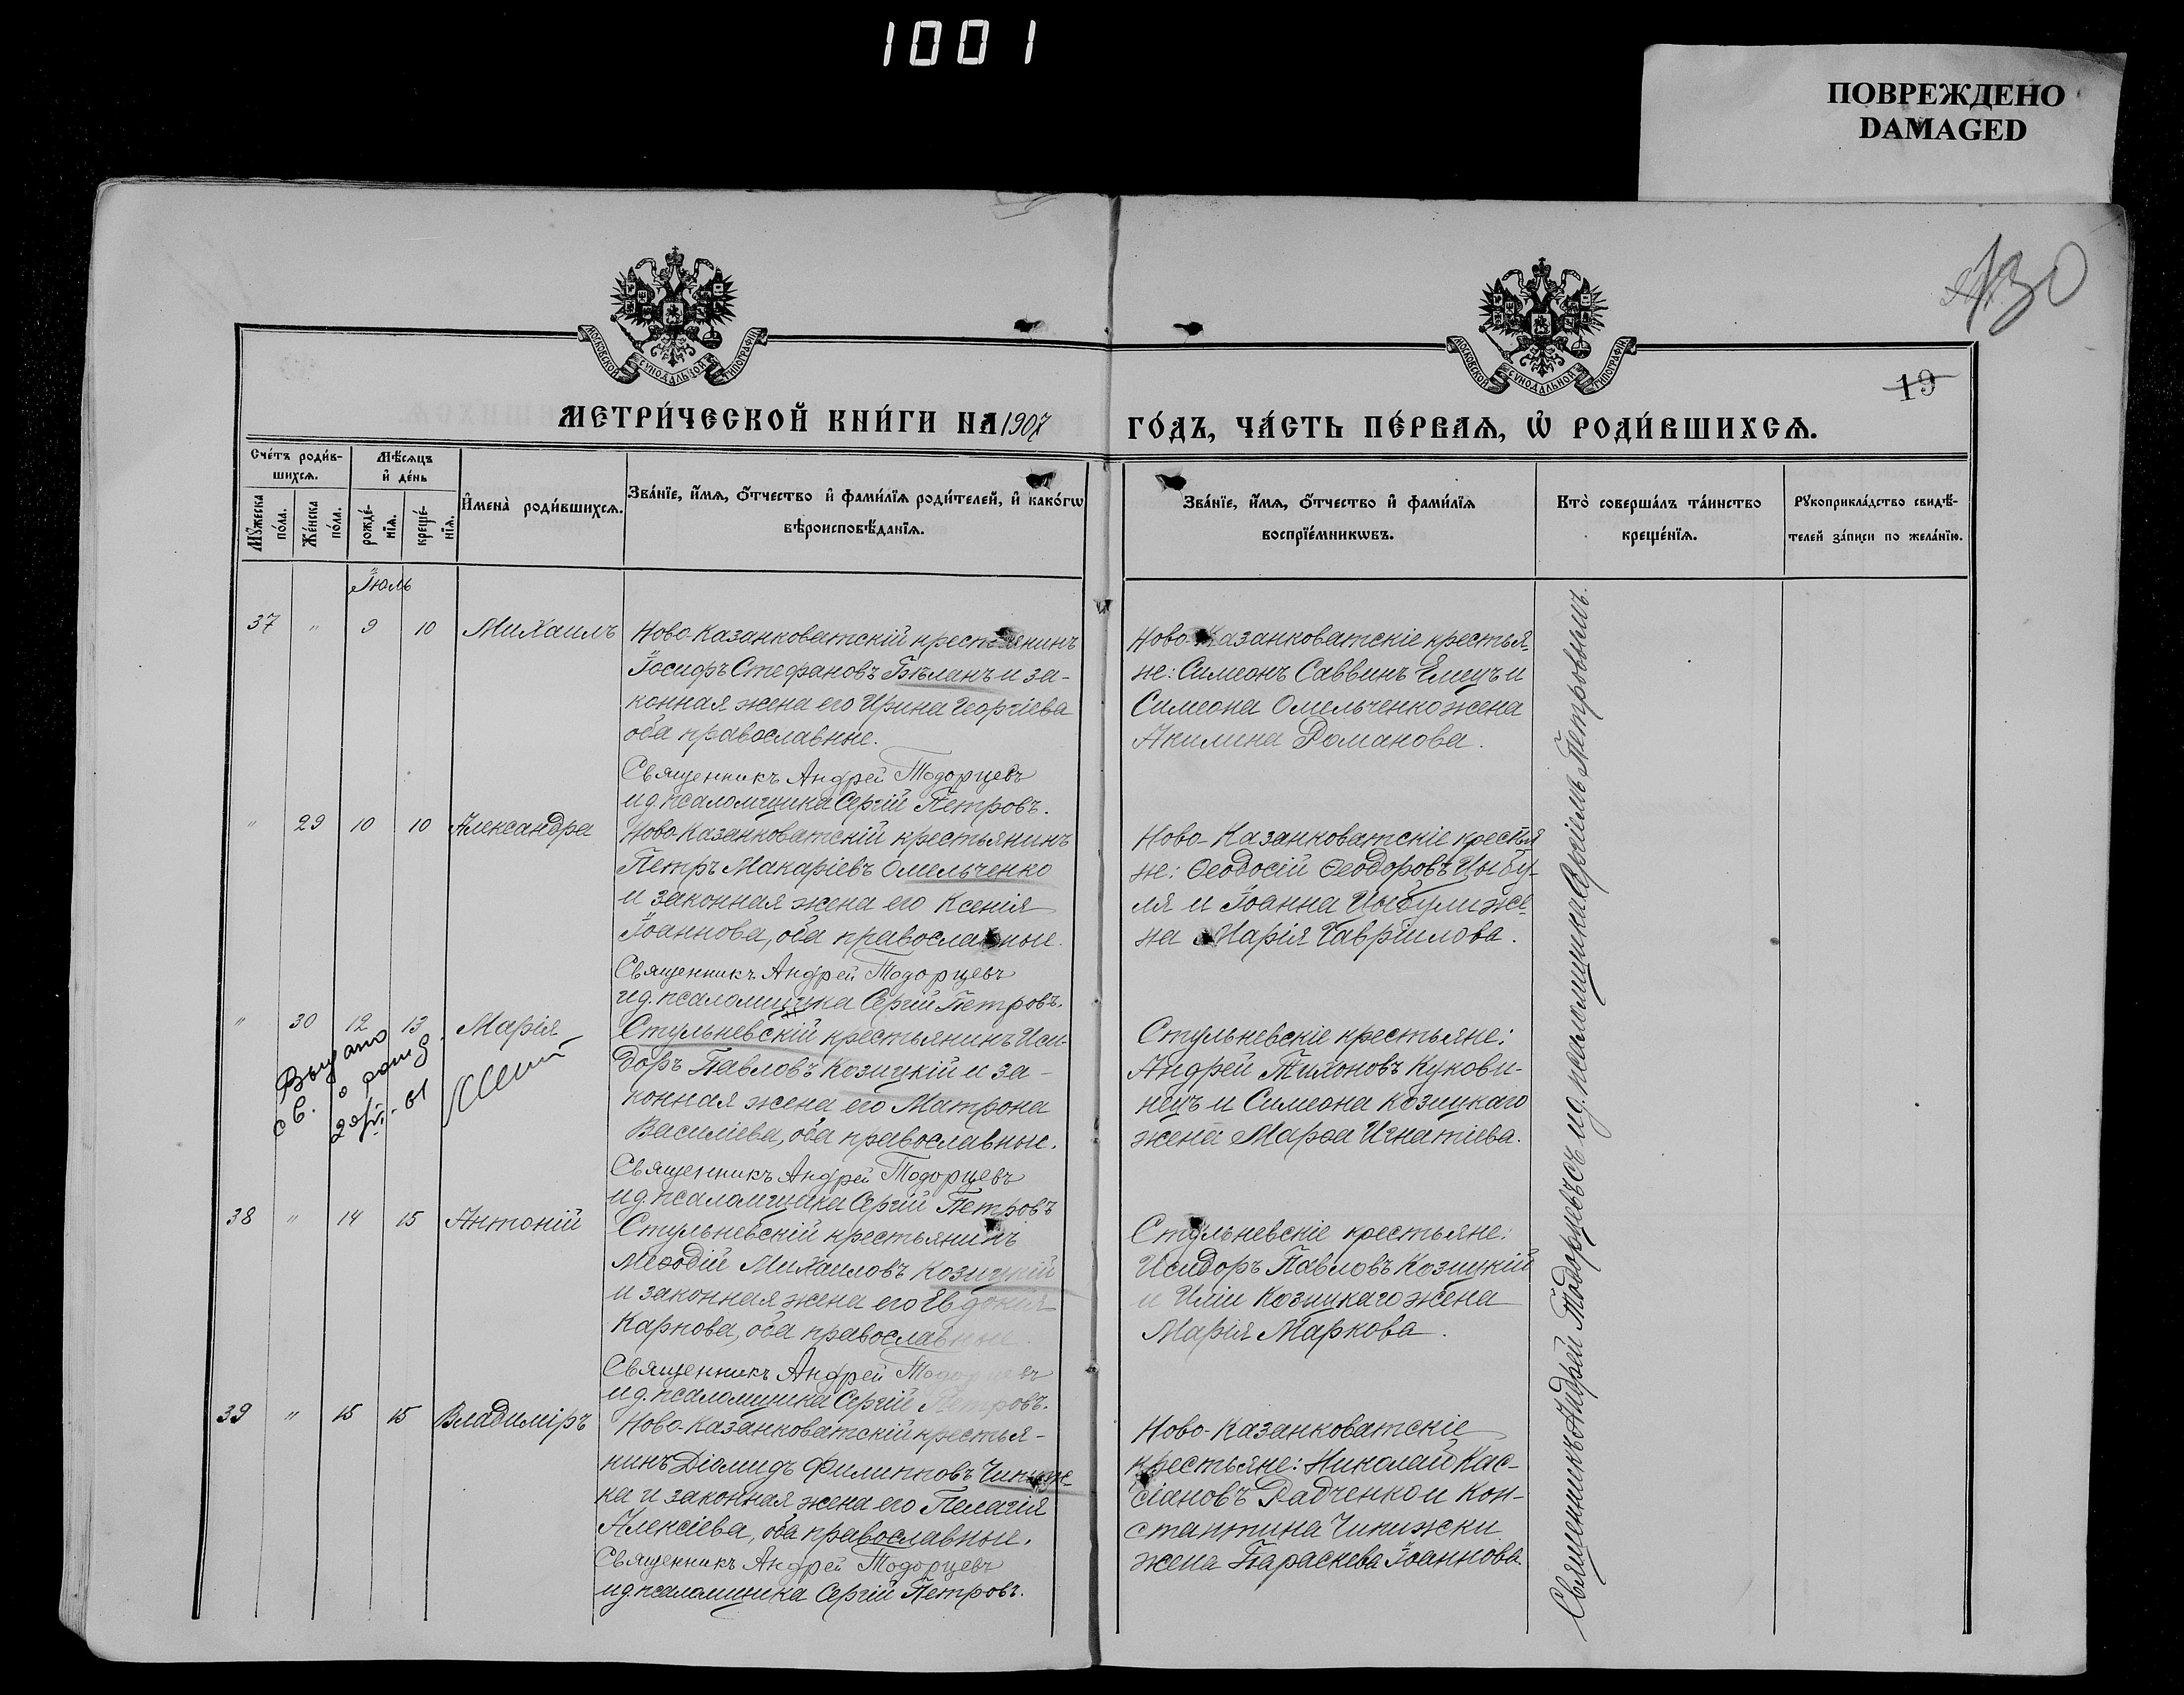 1001
ПОВРЕЖДЕНО
DAMAGED
130
19
МОСКОВСКОЙ СѴНОДАЛЬНОЙ ТИПОГРАФІИ
МОСКОВСКОЙ СѴНОДАЛЬНОЙ ТИПОГРАФІИ
МЕТРИ́ЧЕСКОЙ КНИ́ГИ НА 1907
ГО́ДЪ, ЧА́СТЬ ПЕ́РВАѦ, Ѡ҆ РОДИ́ВШИХСѦ.
Сче́тъ роди́в-
шихсѧ.
Мѣ́сѧцъ
и҆ де́нь
Мꙋ́жеска
по́ла.
Же́нска
по́ла.
рожде́-
нїѧ.
креще́-
нїѧ.
И҆мена̀ роди́вшихсѧ.
Зва́нїе, и҆́мѧ, ѻ҆́тчество и҆ фами́лїѧ роди́телей, и҆ како́гѡ
вѣроисповѣ́данїѧ.
Зва́нїе, и҆́мѧ, ѻ҆́тчество и҆ фами́лїѧ
воспрїе́мникѡвъ.
Кто̀ соверша́лъ та́инство
креще́нїѧ.
Рꙋкоприкла́дство свидѣ́-
телей за́писи по жела́нїю.
Іюль
37 " 9 10 Михаилъ
Ново-Казанковатскій крестьянинъ
Іосифъ Стефановъ Бѣланъ и за-
конная жена его Ирина Георгіева
оба православные.
Священникъ Андрей Тодорцевъ
и д. псаломщика Сергій Петровъ.
Ново-Казанковатскіе крестья-
не: Симеонъ Саввинъ Емецъ и
Симеона Омельченко жена
Акилина Романова.
" 29 10 10 Александра
Ново-Казанковатскій крестьянинъ
Петръ Макаріевъ Омельченко
и законная жена его Ксенія
Іоаннова, оба православные.
Священникъ Андрей Тодорцевъ
и д. псаломщика Сергій Петровъ.
Ново-Казанковатскіе крестья
не: Ѳеодосій Ѳеодоровъ Цыбу-
ля и Іоанна Цыбули же-
на Марія Гавріилова.
" 30 12 13 Марія
Выдано
св. о рожд.
Стульневскій крестьянинъ Иси-
доръ Павловъ Козицкій и за-
конная жена его Матрона
Василіева, оба православные.
Священникъ Андрей Тодорцевъ
и д. псаломщика Сергій Петровъ
Стульневскіе крестьяне:
Андрей Тихоновъ Кукови-
нецъ и Симеона Козицкаго
жена Марѳа Игнатіева.
38 " 14 15 Антоній
Стульневскій крестьянинъ
Меѳодій Михаиловъ Козицкій
и законная жена его Евдокія
Карпова, оба православные.
Священникъ Андрей Тодорцевъ
и д. псаломщика Сергій Петровъ.
Стульневскіе крестьяне:
Исидоръ Павловъ Козицкій
и Иліи Козицкаго жена
Марія Маркова.
39 " 15 15 Владиміръ
Ново-Казанковатскій крестья-
нинъ Діомидъ Филипповъ Чипиж-
ка и законная жена его Пелагія
Алексіева, оба православные.
Священникъ Андрей Тодорцевъ
и д. псаломщика Сергій Петровъ.
Ново-Казанковатскіе
крестьяне: Николай Кас-
сіановъ Радченко и Кон-
стантина Чипижки
жена Параскева Іоаннова.
Священникъ Андрей Тодорцевъ съ и д. псаломщика Сергіемъ Петровымъ.